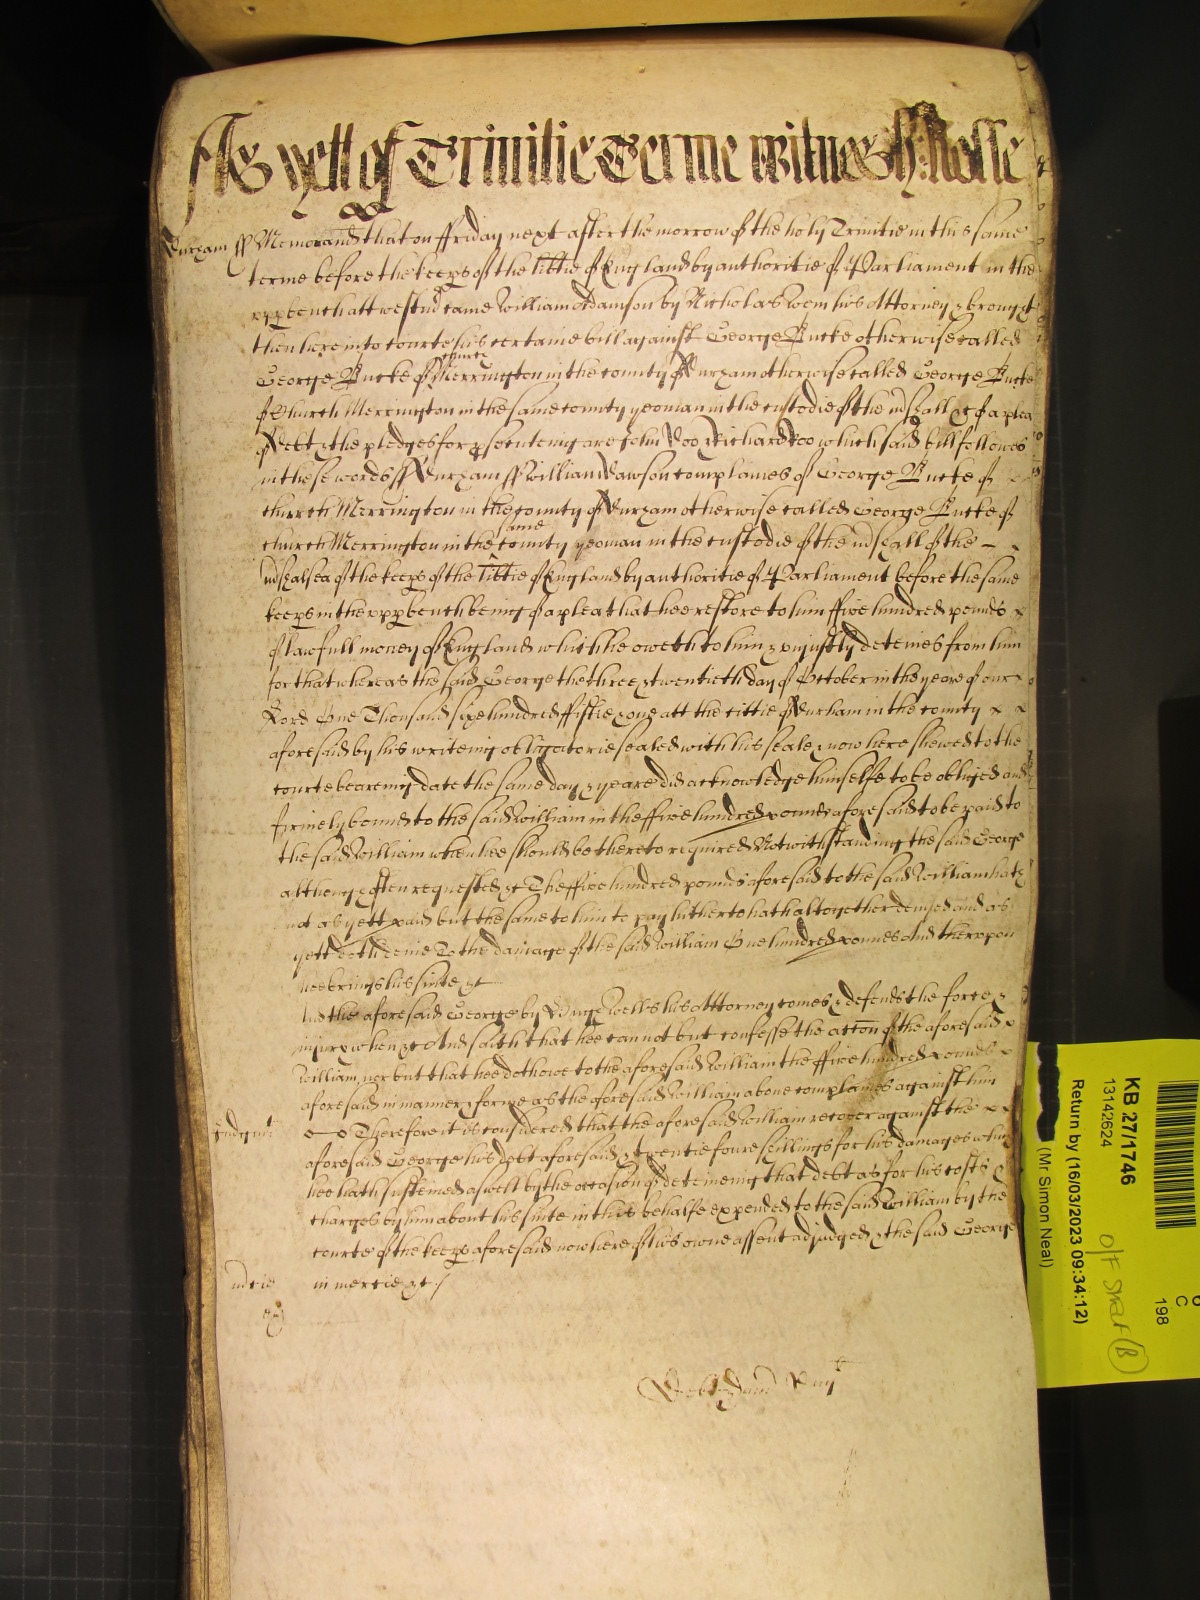 As yett of Trinitie Terme witnes H: Rolle
Durham ss Memorand that on ffriday next after the morrow of the holy Trinitie in this same
terme before the keeps of the libtie of England by authoritie of Parliament in the
upp bench att westm came William Adamson by Nicholas Wem his Attorney & brought
then here into courte his certaine bill against George Bucke otherwise called
George Bucke of church Merrington in the county of Durham otherwise called George Bucke
of Church Merrington in the same county yeoman in the custodie of the mshall &c of a plea
of debt & the pledges for psecuteing are John Doo & Richard Roo which said bill followes
in these words ss Durham ss William Dawson complaines of George Bucke of
church Merrington in the county of Durham otherwise called George Bucke of
church Merrington in the same county yeoman in the custodie of the mshall of the
mshalsea of the keeps of the libtie of England by authoritie of Parliament before the same
keeps in the upp bench being of a plea that hee restore to him ffive hundred pounds
of lawfull money of England which he oweth to him & uniustly deteines from him
for that whereas the said George the three & twentieth day of October in the yeare of our
Lord One Thousand sixe hundred ffiftie & one att the cittie of Durham in the county
aforesaid by his writeing obligatorie sealed with his seale & now here shewed to the
courte beareing date the same day & yeare did acknowledge himselfe to be obliged and
firmely bound to the said William in the ffive hundred pounds aforesaid to be paid to
the said William when hee should be thereto required Notwithstanding the said George
although often requested &c The ffive hundred pounds aforesaid to the said William hath
not as yett paid but the same to him to pay hitherto hath altogether denyed and as
yett doth denie To the damage of the said William One hundred pounds And thereupon
hee brings his suite &c
And the aforesaid George by Wells his Attorney comes & defends the force &
iniury when &c And saith that hee cannot but confesse the accon of the aforesaid
William nor but that hee doth owe to the aforesaid William the ffive hundred pounds
aforesaid in manner & forme as the aforesaid William above complaines against him
Judgmt Therefore it is considered that the aforesaid William recover against the
aforesaid George his debt aforesaid & twentie foure shillings for his damages which
hee hath susteined aswell by the occasion of deteineing that debt as for his costs &
charges by him about his suite in this behalfe expended to the said William by the
courte of the keeps aforesaid now here of his owne assent adjudged & the said George
mcie in mercie &c
KB 27/1746
13142624
Return by (16/03/2023 09:34:12)
(Mr Simon Neal)
C
198